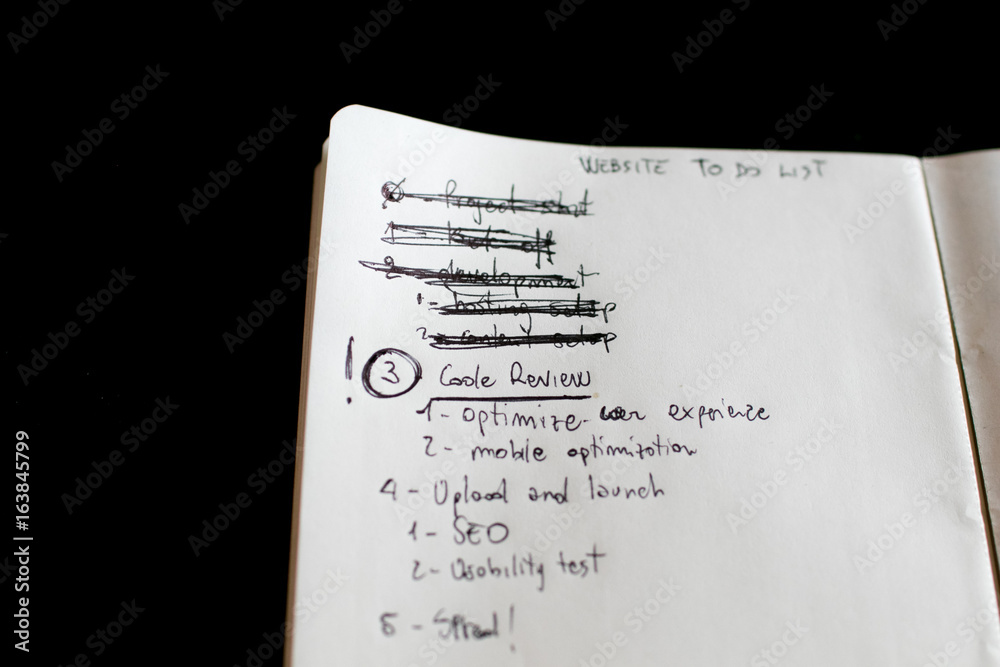 WEBSITE TO DO LIST
0 - Project start
1 - Kick off
2 - development
1 - hosting setup
2 - content setup
! 3 Code Review
1 - optimize user experience
2 - mobile optimization
4 - Upload and launch
1 - SEO
2 - Usability test
5 - Spread!
163845799
Adobe Stock